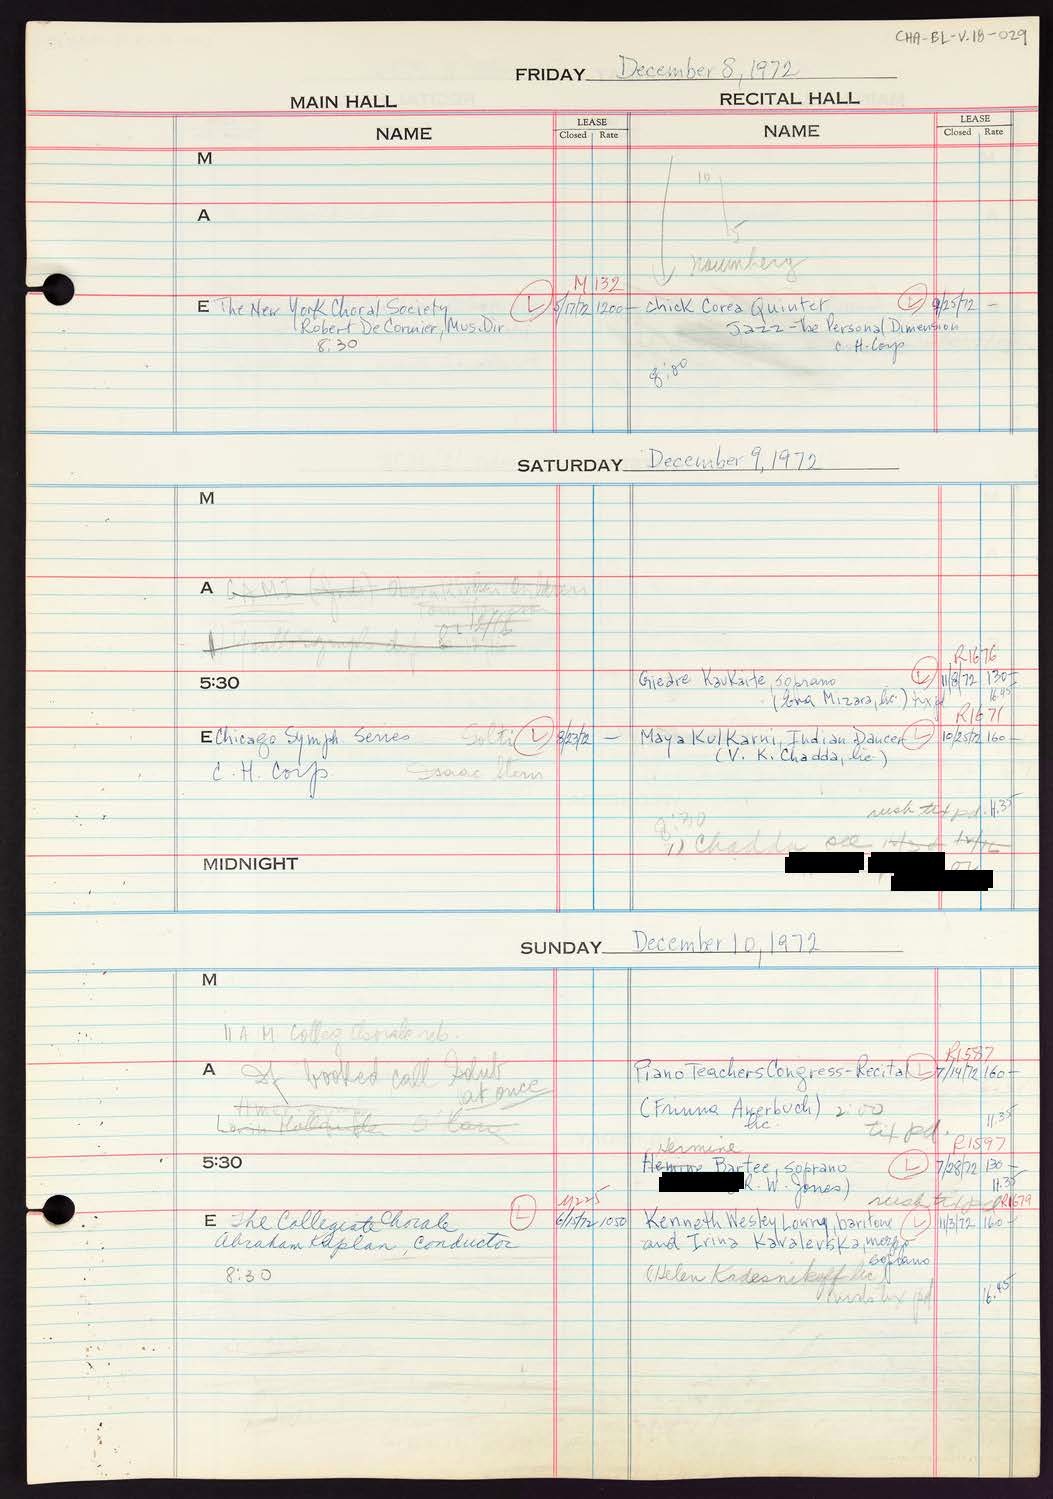 CHA-BL-V.18-029
FRIDAY December 8, 1972
MAIN HALL
RECITAL HALL
NAME
LEASE
Closed Rate
NAME
LEASE
Closed Rate
M
10
5
A
naumberg
M 132
E The New York Choral Society L 5/17/72 1200—
Robert De Cormier, Mus. Dir.
8:30
Chick Corea Quintet L 9/25/72 —
Jazz - the Personal Dimension
C. H. Corp
8:00
SATURDAY December 9, 1972
M
A CAMI
5:30
R1676
Giedre Kaukaite, soprano L 11/8/72 130—
(Eva Mizara, lic.) tix pd 16.45
R1671
E Chicago Symph. Series Solti L 8/23/72 —
C. H. Corp. Isaac Stern
Maya Kulkarni, Indian Dancer L 10/25/72 160—
(V. K. Chadda, lic.)
rush tix pd. 11.35
8:30
Chadda see
MIDNIGHT
SUNDAY December 10, 1972
M
11 A M Colleg Chorale reb.
A If booked call
at once
R1587
Piano Teachers Congress - Recital L 7/14/72 160—
(Frinna Awerbuch) 2:00
lic.
tix pd. 11.35
5:30
R1597
Hermine
Hemine Bartee, soprano L 7/28/72 130—
R. W. Jones) 11.35
rush tix pd R1679
M225
E The Collegiate Chorale L 6/15/72 1050
Abraham Kaplan, conductor
8:30
Kenneth Wesley Lowry, baritone L 11/3/72 160—
and Irina Kavalevska, mezzo
soprano
(Helen Kadesnikoff lic)
tix pd 16.45